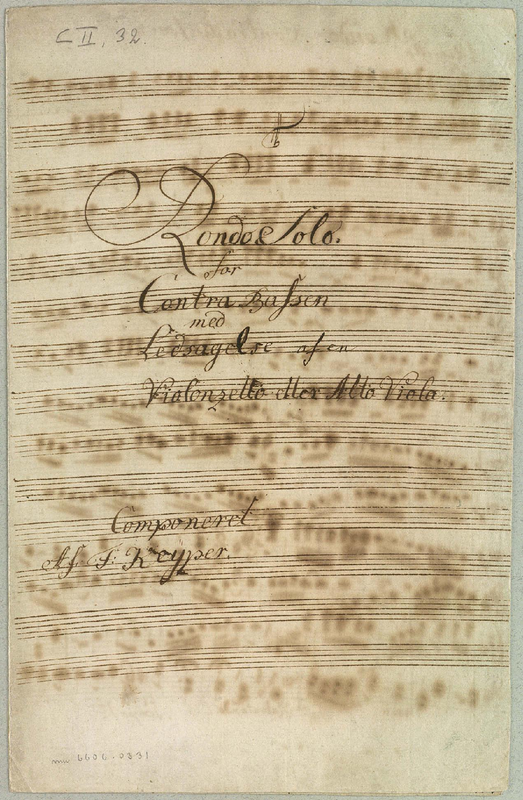 C II, 32.
Rondo & Solo.
for
Contra Bassen
med
Ledsagelse af en
Violonzello eller Alto Viola.
Componeret
Af. F. Keyper.
mu 6606.0331